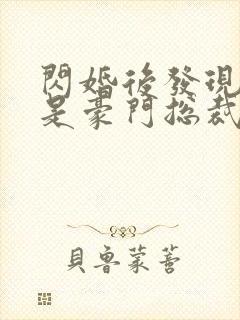 閃婚後發現
是豪門總裁
貝魯蒙蒼